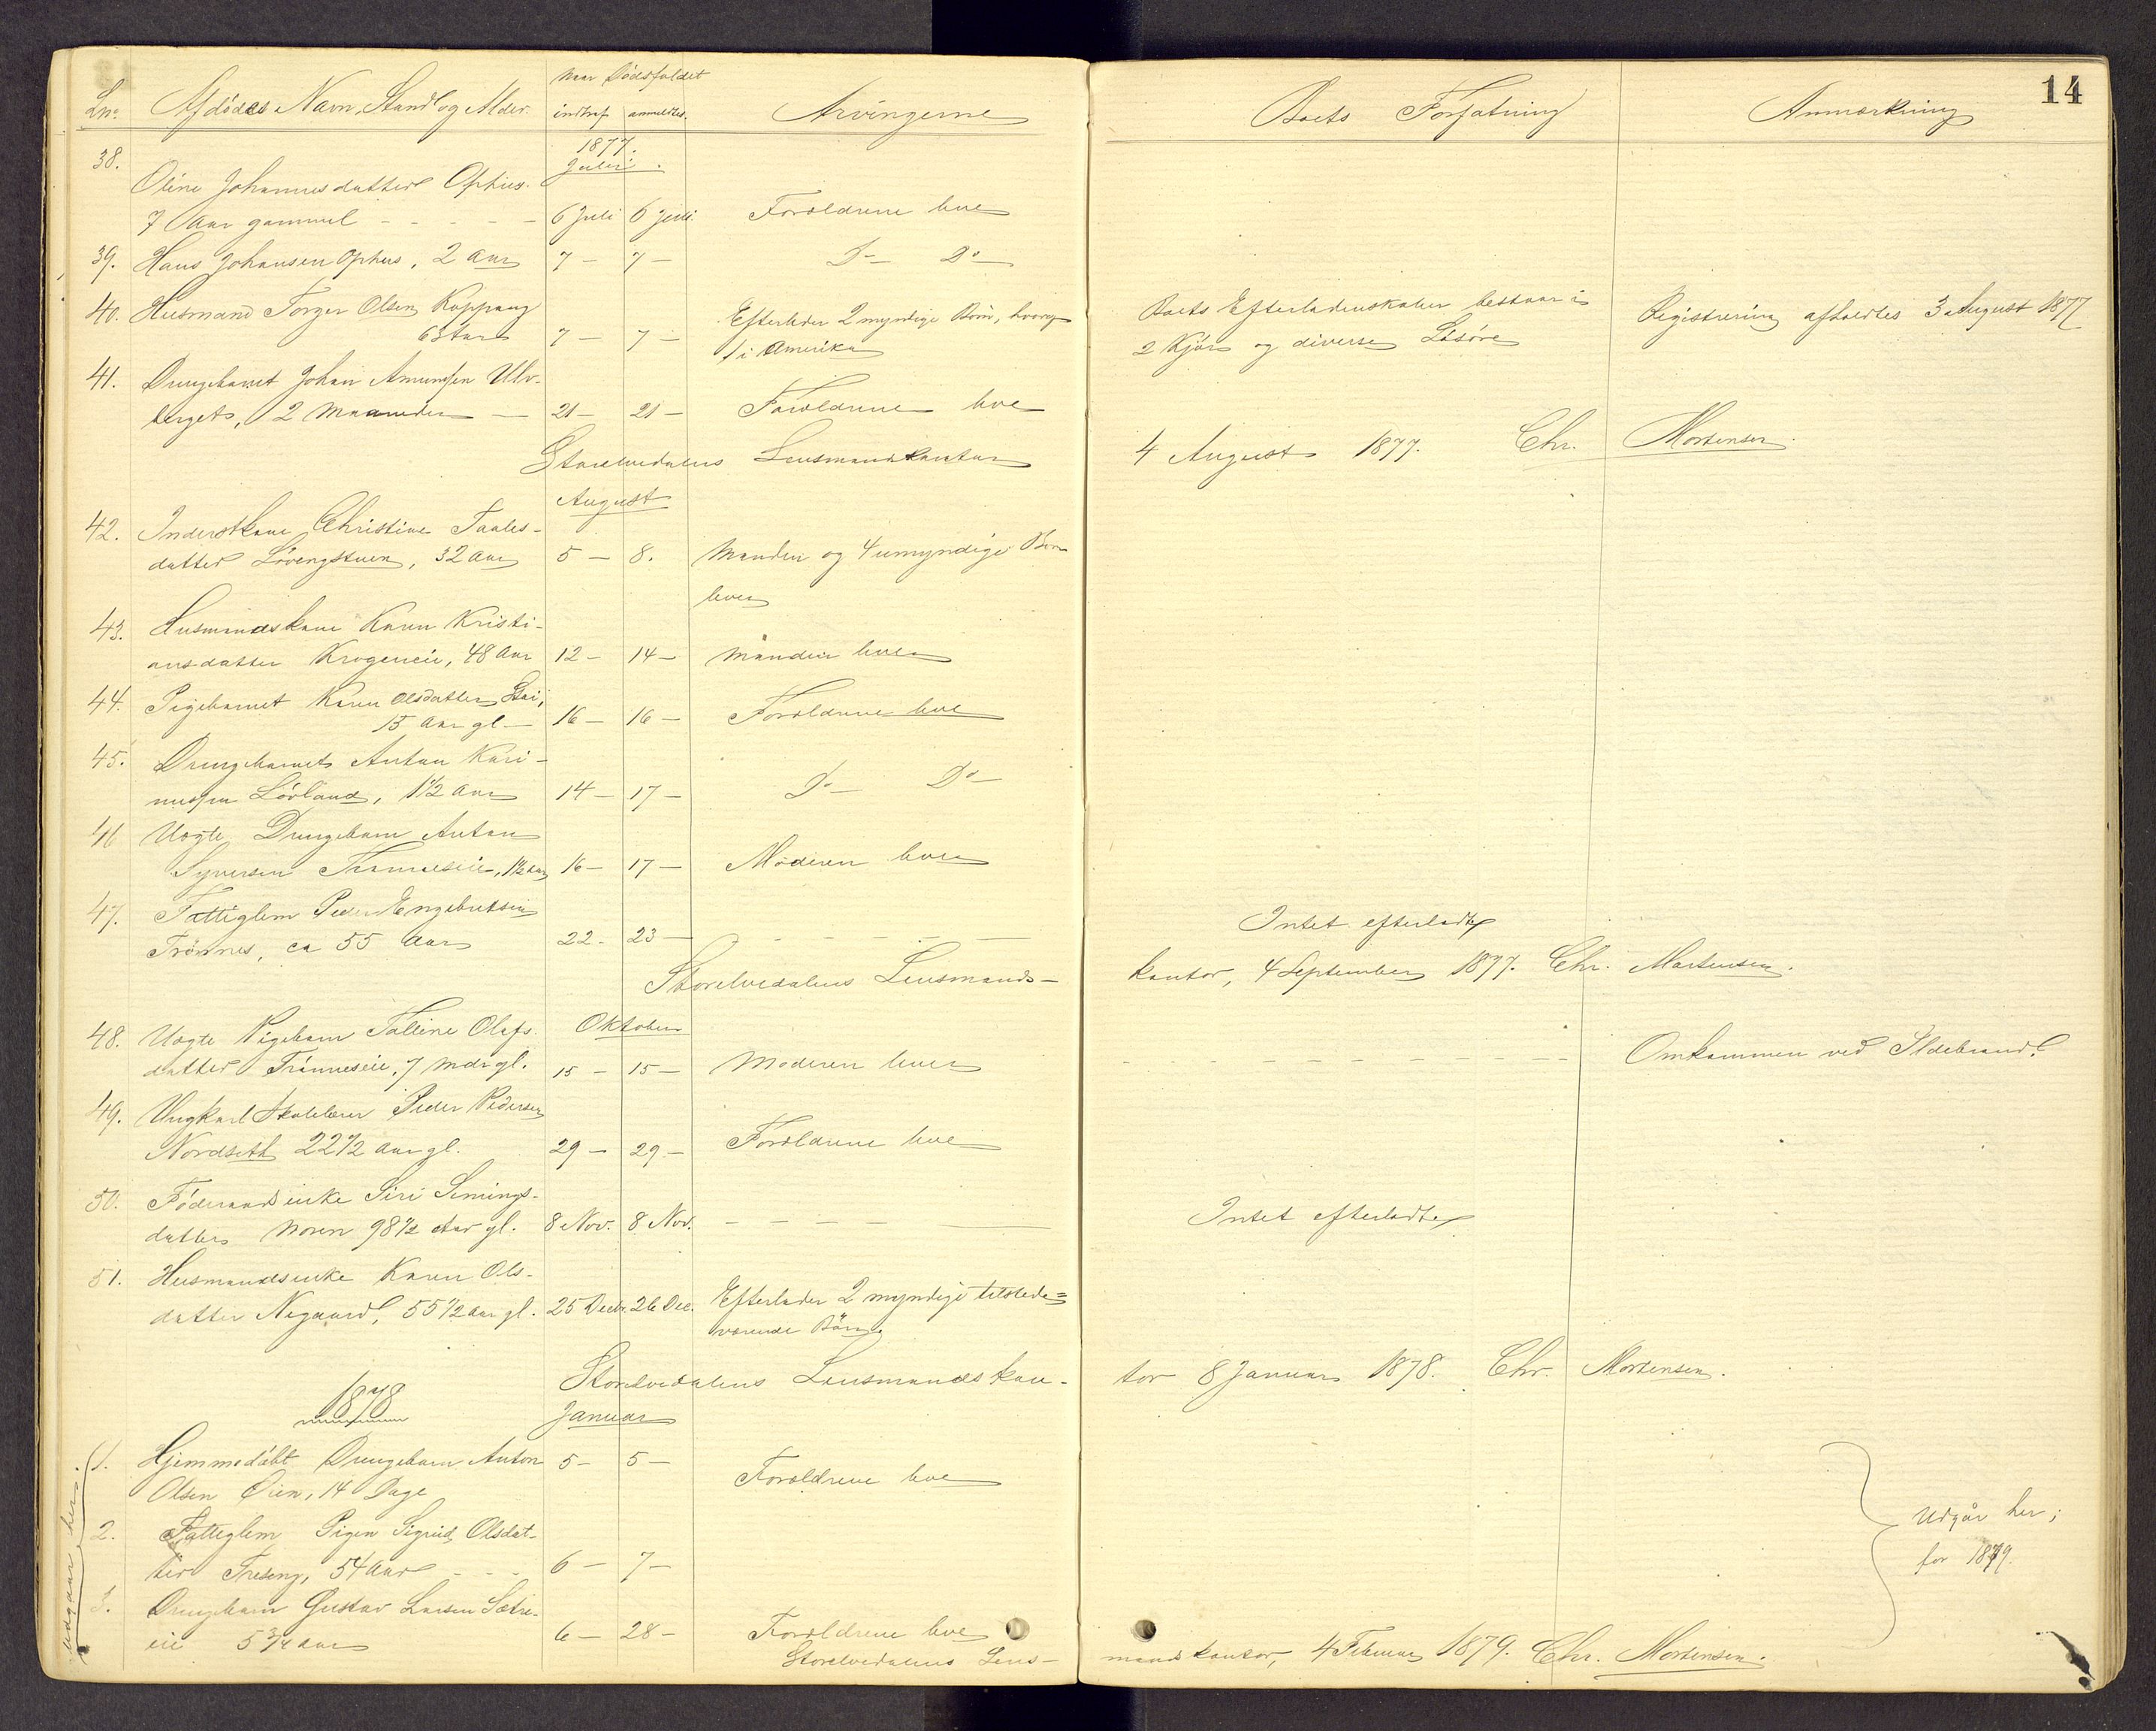 14
Naar Dødsfaldet
Lno. Afdødes Navn, Stand og Alder. indtraf anmeldtes. Arvingerne Boets Forfatning Anmærkning
1877.
38. Juli
Oline Johannesdatter Ophus.
7 Aar gammel - - - - - 6 Juli 6 Juli Forældrene leve
39. Hans Johansen Ophus, 2 Aar 7 - 7 - Do Do
40. Husmand Torger Olsen Koppang Efterlader 2 myndige Børn, hvoraf Boets Efterladenskaber bestaar i Registrering afholdtes 3 August 1877
63 Aar 7 - 7 - 1 i Amerika 2 Kjør og diverse Løsøre
41. Drengebarnet Johan Amundsen Ulv-
bergets, 2 Maaneder - 21 - 21 - Forældrene leve
Storelvedalens Lensmandskontor 4 August 1877. Chr. Mortensen.
August
42. Inderstkone Christine Taales-
datter Løvengstuen, 32 Aar 5 - 8. Manden og 4 umyndige Børn
lever
43. Husmandskone Karen Kristi-
ansdatter Krogeneie, 48 Aar 12 - 14 - Manden lever
44. Pigebarnet Karen Olsdatter Stai,
15 Aar gl - 16 - 16 - Forældrene leve
45. Drengebarnet Anton Kari-
nussen Løvland, 1½ Aar 14 - 17 - Do Do
46 Uægte Drengebarn Anton
Syversen Trønneseie, 1½ Aar 16 - 17 - Moderen lever
47. Fattiglem Peder Engebretsen Intet efterladt
Trønnes, ca 55 Aar 22 - 23 -
Storelvedalens Lensmands- kontor, 4 September 1877. Chr. Mortensen.
48. Uægte Pigebarn Talline Olafs- Oktober Omkommen ved Ildebrand.
datter Trønneseie, 7 mdr gl. 15 - 15 - Moderen lever
49. Ungkarl Skolelærer Peder Pedersen
Nordseth 22½ Aar gl. 29 - 29 - Forældrene leve
50. Føderaadsenke Siri Simings- Intet efterladt
datter Moren 98½ Aar gl. 8 Nov. 8 Nov.
51. Husmandsenke Karen Ols-
datter Negaard, 55½ Aar gl. 25 Decbr. 26 Dec. Efterlader 2 myndige tilstede=
værende Børn.
Storelvedalens Lensmandskon- tor 8 Januar 1878. Chr. Mortensen.
1878
Januar
1. Hjemmedøbt Drengebarn Anton 5 - 5 -
Olsen Øien, 14 Dage Forældrene leve
2. Fattiglem Pigen Sigrid Olsdat-
ter Treseng, 54 Aar - - - 6 - 7 -
Udgår her;
for 1879.
3. Drengebarn Gustav Larsen Sætre-
eie 5¾ Aar 6 - 28 - Forældrene leve
Storelvedalens Lens- mandskontor, 4 Februar 1879. Chr. Mortensen.
udgaar her.